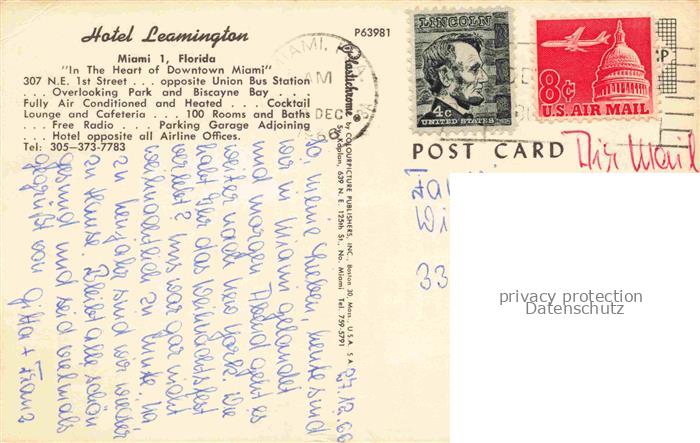 Hotel Leamington
P63981
Miami 1, Florida
"In The Heart of Downtown Miami"
307 N.E. 1st Street . . . opposite Union Bus Station
. . . Overlooking Park and Biscayne Bay . . .
Fully Air Conditioned and Heated . . . Cocktail
Lounge and Cafeteria . . . 100 Rooms and Baths
. . . Free Radio . . . Parking Garage Adjoining
Hotel opposite all Airline Offices.
Tel: 305—373-7783
MIAMI, FLA
AM
DEC
1966
LINCOLN
4¢
UNITED STATES
8¢
U.S. AIR MAIL
POST CARD
Air Mail
Plastichrome ® by COLOURPICTURE PUBLISHERS, INC., Boston 30, Mass., U.S.A.
S. Kaplan, 639 N. E. 125th St., No. Miami Tel. 759-5791
27.12.66
So, meine Lieben, heute sind
wir in Miami gelandet
und morgen Abend geht es
weiter nach New York. Wie
habt Ihr das Weihnachtsfest
verlebt? Uns war gar nicht
weihnachtlich zu Mute. Bis
zu Neujahr sind wir wieder
zu Hause. Bleibt alle schön
gesund und seid vielmals
gegrüßt von Gitta + Franz
Fa
Wi
33
privacy protection
Datenschutz